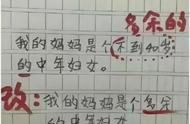 多余的
我的妈妈是个不到40岁
的中年妇女。
改：我的妈妈是个多余
的中年妇女